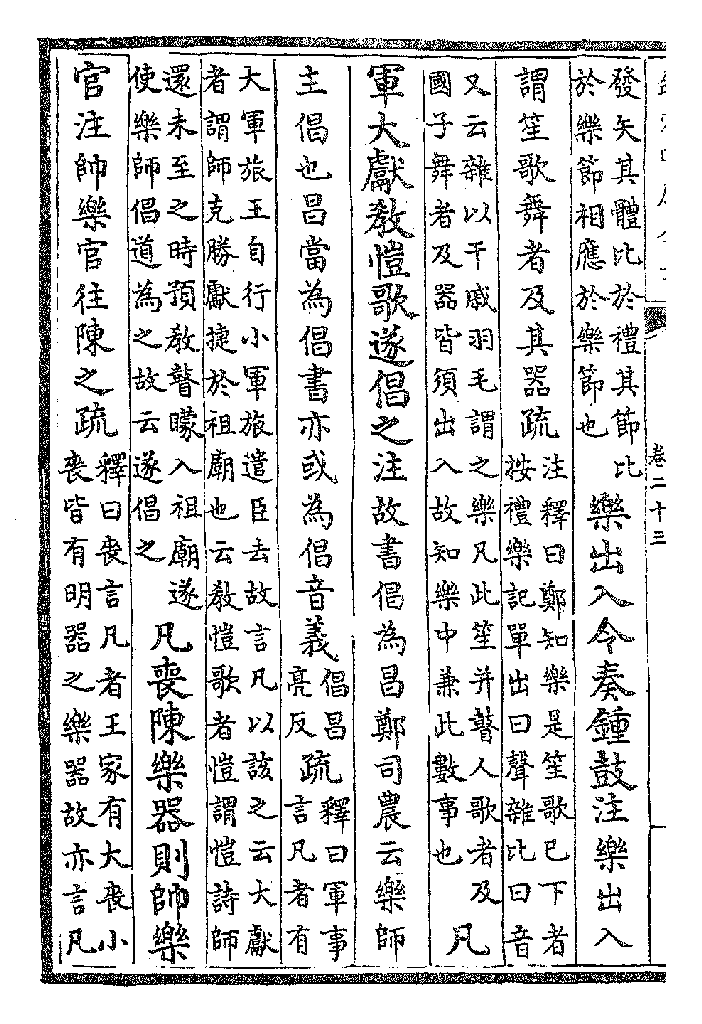 發矢其體比於禮其節比
於樂節相應於樂節也
樂出入令奏鍾鼓注樂出入
謂笙歌舞者及其器疏
注釋曰鄭知樂是笙歌已下者
按禮樂記單出曰聲雜比曰音
又云雜以干戚羽毛謂之樂凡此笙并瞽人歌者及
國子舞者及器皆須出入故知樂中兼此數事也
凡
軍大獻教愷歌遂倡之注故書倡為昌鄭司農云樂師
主倡也昌當為倡書亦或為倡音義
倡昌
亮反
疏
釋曰軍事
言凡者有
大軍旅王自行小軍旅遣臣去故言凡以該之云大獻
者謂師克勝獻捷於祖廟也云教愷歌者愷謂愷詩師
還未至之時預教瞽矇入祖廟遂
使樂師倡道為之故云遂倡之
凡喪陳樂器則帥樂
官注帥樂官往陳之疏
釋曰喪言凡者王家有大喪小
喪皆有明器之樂器故亦言凡
卷二十三